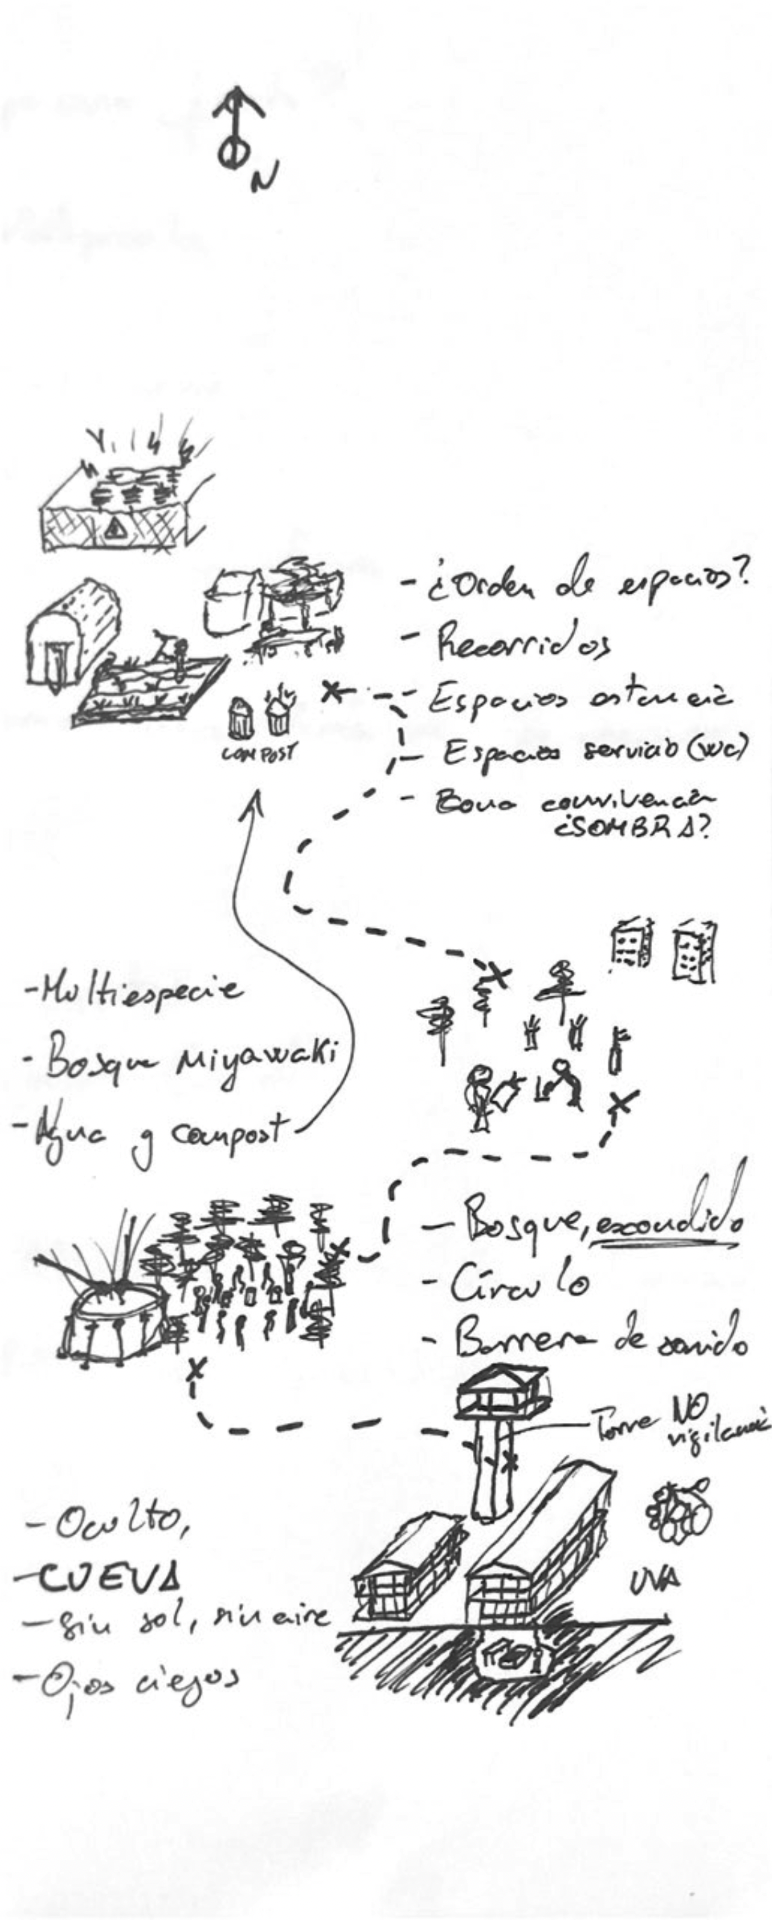 N
- ¿Orden de espacios?
- Recorridos
- Espacios estancia
- Espacios servicio (WC)
- Zona convivencia
¿SOMBRA?
COMPOST
- Multiespecie
- Bosque Miyawaki
- Agua y compost
- Bosque, escondido
- Círculo
- Barrera de sonido
Torre NO
vigilancia
- Oculto,
- CUEVA
- sin sol, sin aire
- Ojos ciegos
UVA